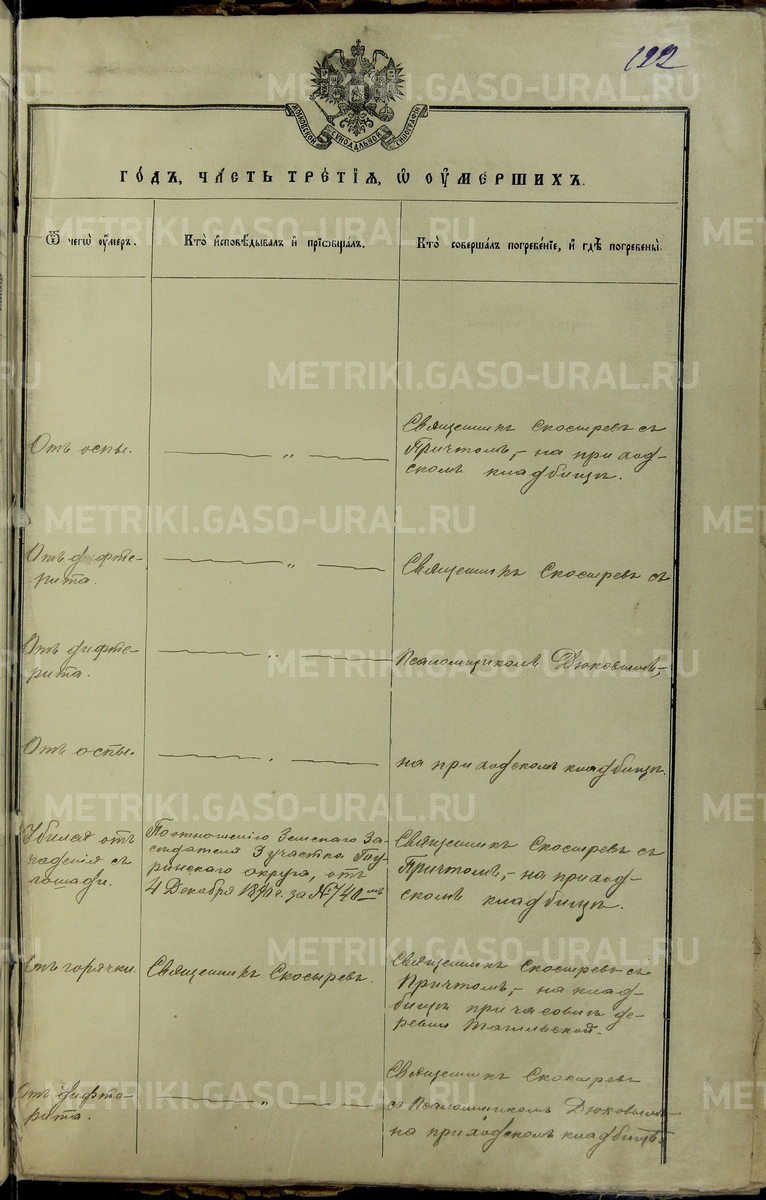 122
ЯНОВСКОЙ СУНОДАЛЬНОЙ ТИПОГРАФІИ
ГО́ДЪ, ЧА́СТЬ ТРЕ́ТІѦ, Ѿ ОУ҆МЕ́РШИХЪ.
Ѿ чегѡ̀ оу҆́меръ.
Кто̀ и҆сповѣ́дывалъ и҆ прїѡбща́лъ.
Кто̀ соверша́лъ погребе́нїе, и҆ гдѣ̀ погребены̀.
Отъ оспы.
— „ —
Священникъ Скосыревъ съ
Причтомъ,- на приход-
скомъ кладбищѣ.
Отъ дифте-
рита.
— „ —
Священникъ Скосыревъ съ
Отъ дифте-
рита.
— „ —
Псаломщикомъ Дюковымъ,-
Отъ оспы.
— „ —
на приходскомъ кладбищѣ.
Убилая отъ
паденія съ
лошади.
По отношенію Земскаго За-
сѣдателя 3 участка Ту-
ринскаго округа, отъ
4 Декабря 1890 г. за № 740-мъ
Священникъ Скосыревъ съ
Причтомъ,- на приход-
скомъ кладбищѣ.
Отъ горячки.
Священникъ Скосыревъ.
Священникъ Скосыревъ съ
Причтомъ,- на клад-
бищѣ при часовнѣ де-
ревни Тагильской.
Отъ дифте-
рита.
— „ —
Священникъ Скосыревъ
съ Псаломщикомъ Дюковымъ-
на приходскомъ кладбищѣ.
METRIKI.GASO-URAL.RU